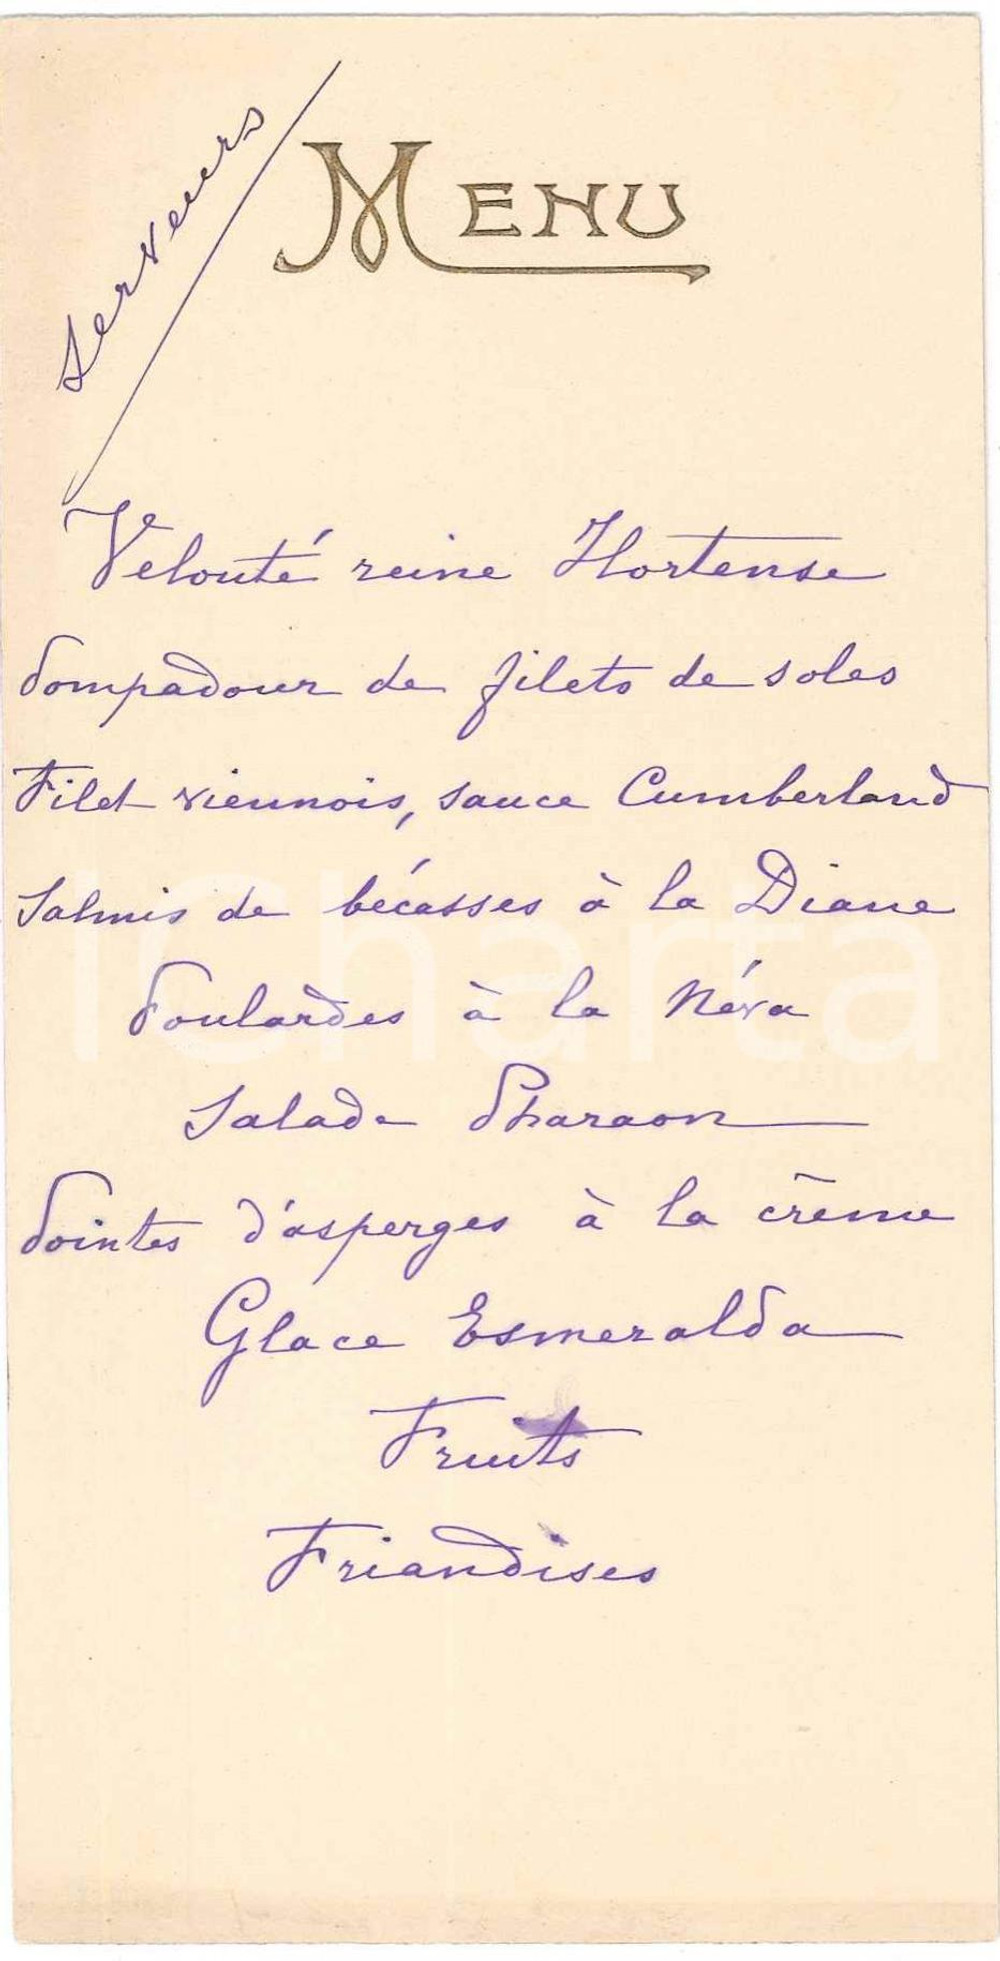 Serveurs
MENU
Velouté reine Hortense
Pompadour de filets de soles
Filet viennois, sauce Cumberland
Salmis de bécasses à la Diane
Poulardes à la Néva
Salade Pharaon
Pointes d'asperges à la crème
Glace Esmeralda
Fruits
Friandises
iCharta